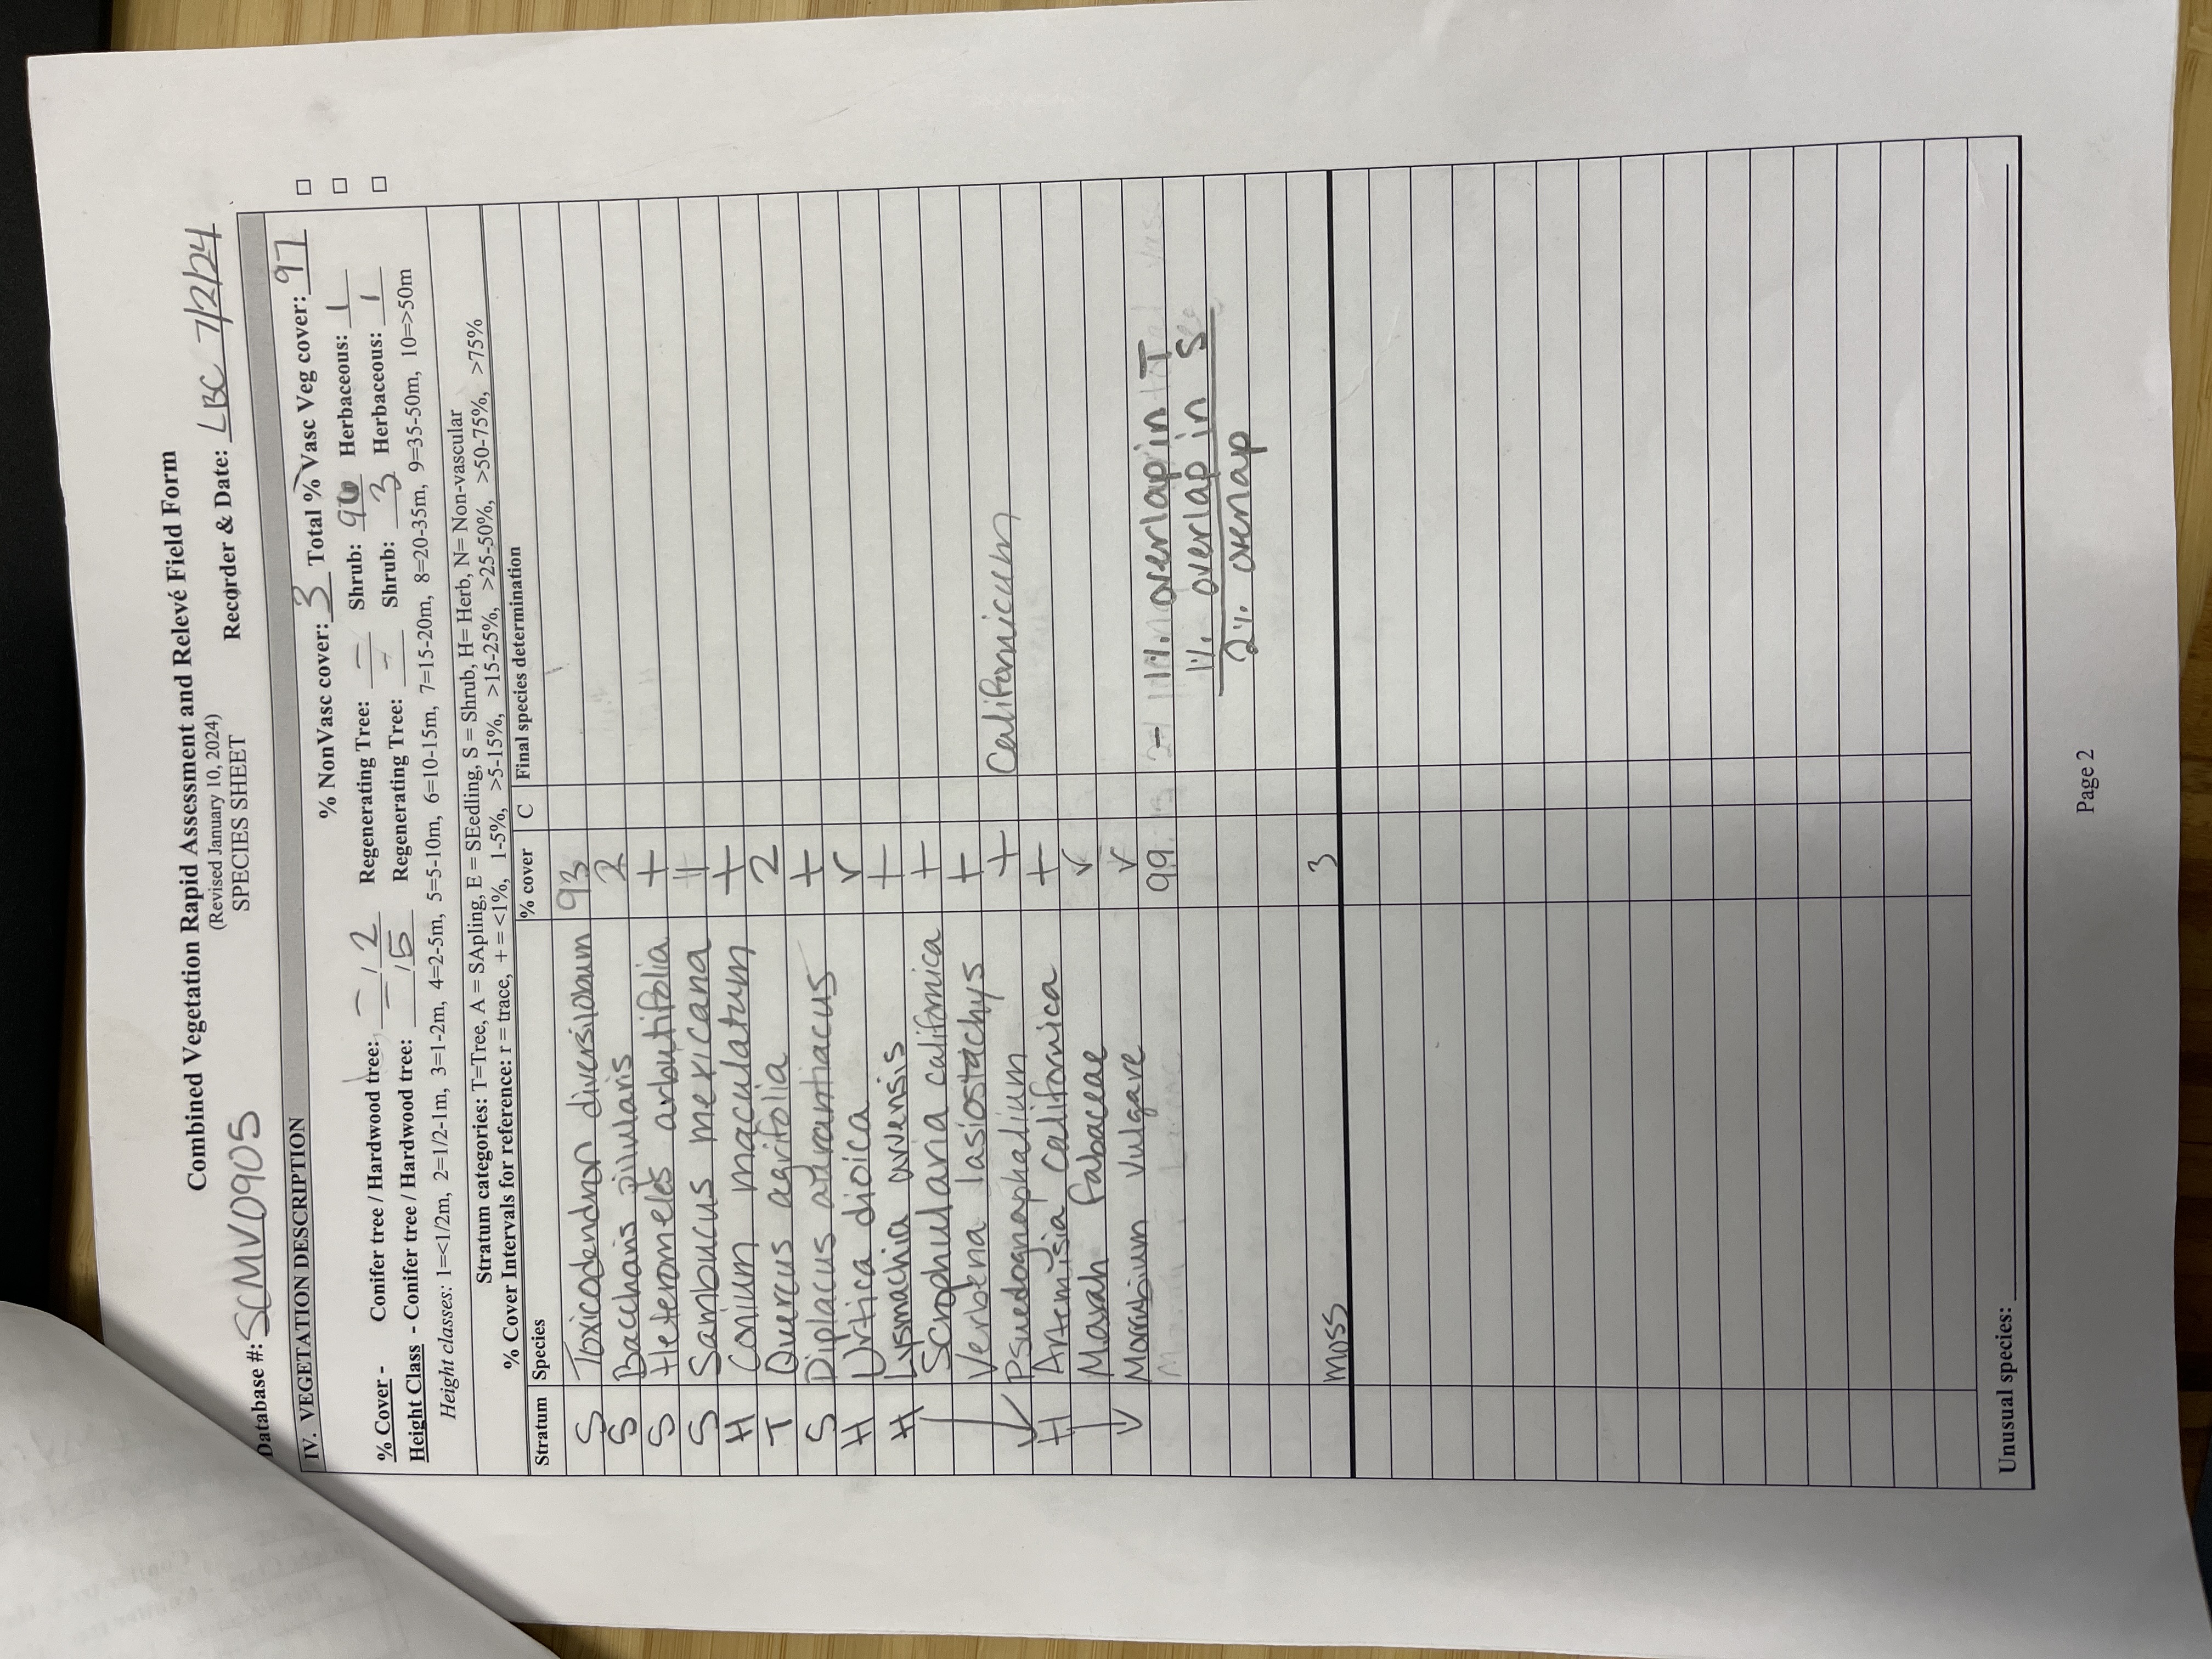 Combined Vegetation Rapid Assessment and Relevé Field Form
(Revised January 10, 2024)
Database #: SCMV0905 SPECIES SHEET Recorder & Date: LBC 7/2/24
IV. VEGETATION DESCRIPTION
% NonVasc cover: 3 Total % Vasc Veg cover: 97
% Cover - Conifer tree / Hardwood tree: — / 2 Regenerating Tree: — Shrub: 96 Herbaceous: 1
Height Class - Conifer tree / Hardwood tree: — / 5 Regenerating Tree: — Shrub: 3 Herbaceous: 1
Height classes: 1=<1/2m, 2=1/2-1m, 3=1-2m, 4=2-5m, 5=5-10m, 6=10-15m, 7=15-20m, 8=20-35m, 9=35-50m, 10=>50m
Stratum categories: T=Tree, A = SApling, E = SEedling, S = Shrub, H= Herb, N= Non-vascular
% Cover Intervals for reference: r = trace, + = <1%, 1-5%, >5-15%, >15-25%, >25-50%, >50-75%, >75%
Stratum Species % cover C Final species determination
S Toxicodendron diversilobum 93
S Baccharis pilularis 2
S Heteromeles arbutifolia +
S Sambucus mexicana
H Conium maculatum +
T Quercus agrifolia 2
S Diplacus aurantiacus +
H Urtica dioica r
H Lysmachia arvensis +
Scrophularia californica +
Verbena lasiostachys +
Psuedognaphalium + Californicum
H Artemisia californica +
Marah fabaceae r
Marrubium vulgare r
99 - 1% overlap in T
1% overlap in S
2% overlap
moss 3
Unusual species:
Page 2